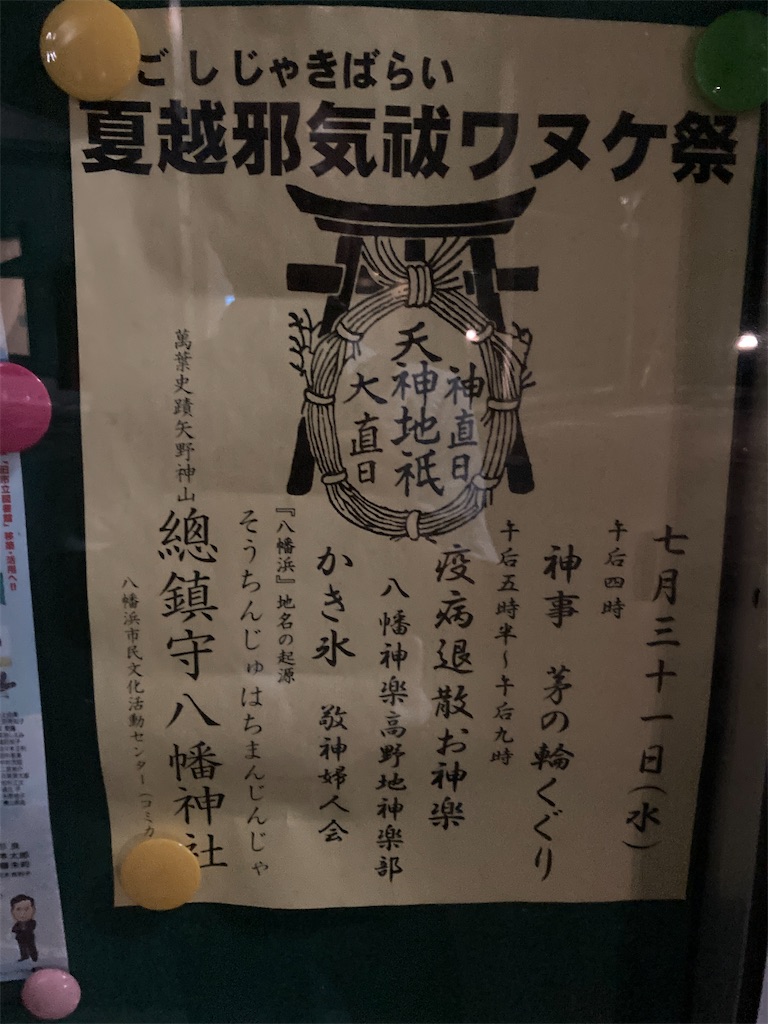 ごしじゃきばらい
夏越邪気祓ワヌケ祭
神直日
天神地祇
大直日
七月三十一日(水)
午后四時
神事 茅の輪くぐり
午后五時半～午后九時
疫病退散お神楽
八幡神楽高野地神楽部
かき氷 敬神婦人会
『八幡浜』地名の起源
そうちんじゅはちまんじんじゃ
萬葉史蹟矢野神山
總鎮守八幡神社
八幡浜市民文化活動センター(コミカ